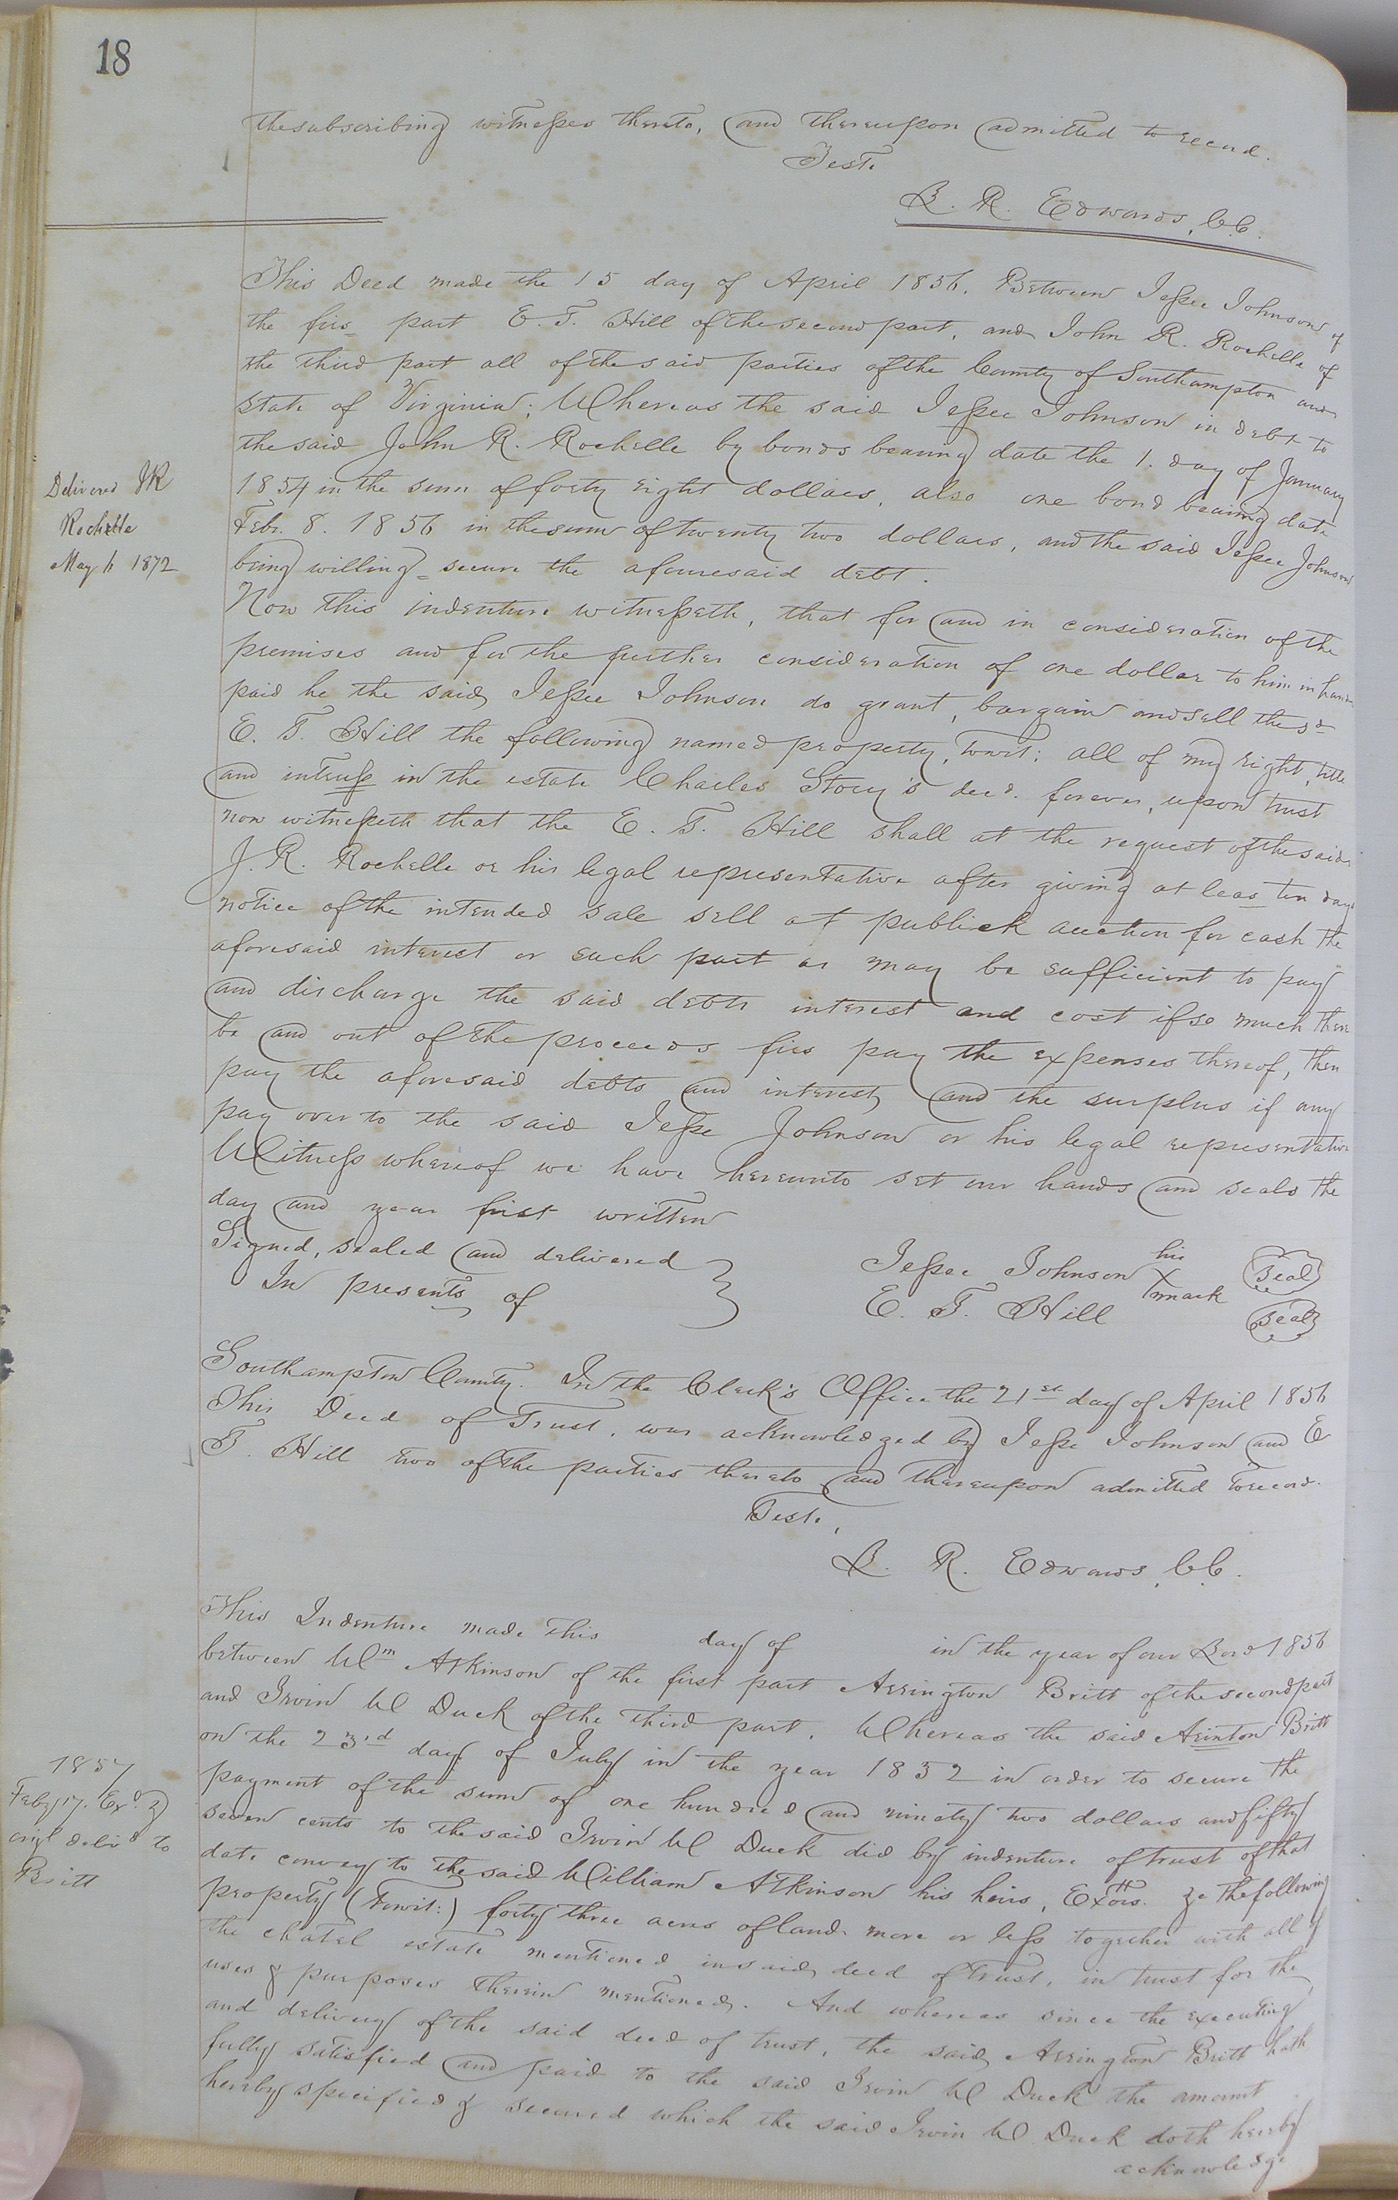 18
the subscribing witnesses thereto, and thereupon admitted to record.
Teste
L. R. Edwards, C.C.
This Deed made the 15 day of April 1856. Between Jessee Johnson of
the firs part E. T. Hill of the second part, and John R. Rochelle of
the third part all of the said parties of the County of Southampton and
State of Virginia; Whereas the said Jessee Johnson in debt to
the said John R. Rochelle by bonds bearing date the 1. day of January
1854 in the sum of forty eight dollars, also one bond bearing date
Feb. 8. 1856 in the sum of twenty two dollars, and the said Jessee Johnson
being willing secure the aforesaid debt.
Delivered JR
Rochelle
May 1872
Now this indenture witnesseth, that for and in consideration of the
premises and for the further consideration of one dollar to him in hand
paid he the said Jessee Johnson do grant, bargain and sell the sd
E. T. Hill the following named property, towit: all of my right, title
and intrust in the estate Charles Story's decd. forever, upon trust
now witnesseth that the E. T. Hill shall at the request of the said
J. R. Rochelle or his legal representative after giving at leas ten days
notice of the intended sale sell at publick auction for cash the
aforesaid interest or such part as may be sufficient to pay
and discharge the said debts interest and cost if so much there
be and out of the proceeds firs pay the expenses thereof, then
pay the aforesaid debts and interest, and the surplus if any
pay over to the said Jesse Johnson or his legal representative
Witness whereof we have hereunto set our hands and seals the
day and year first written
Signed, sealed and delivered
In presents of
Jessee Johnson his X mark Seal
E. T. Hill Seal
Southampton County. In the Clerk's Office the 21st day of April 1856
This Deed of Trust, was acknowledged by Jesse Johnson and E
T. Hill two of the parties thereto and thereupon admitted to record.
Teste,
L. R. Edwards, C.C.
This Indenture made this day of in the year of our Lord 1856
between Wm Atkinson of the first part Arrington Britt of the second part
and Irvin W Duck of the third part. Whereas the said Arinton Britt
on the 23rd day of July in the year 1852 in order to secure the
payment of the sum of one hundred and ninety two dollars and fifty
seven cents to the said Irvin W Duck did by indenture of trust of that
date convey to the said William Atkinson his heirs, Exors. &c the following
property (towit:) forty three acres of land more or less together with all of
the chatel estate mentioned in said deed of trust, in trust for the
uses & purposes therein mentioned. And whereas since the executing
and delivery of the said deed of trust, the said Arrington Britt hath
fully satisfied and paid to the said Irvin W Duck the amount
hereby specified & secured which the said Irvin W Duck doth hereby
acknowledge
1857
Feby 17. Exd &
origl delivd to
Britt